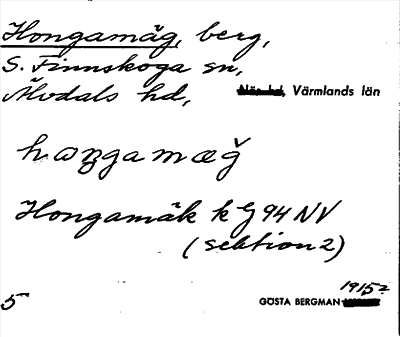 Hongamäg, berg,
S. Finnskoga sn,
Älvdals hd, Värmlands län
Hongamäk k G 94 NV
(sektion 2)
5
GÖSTA BERGMAN 1915?